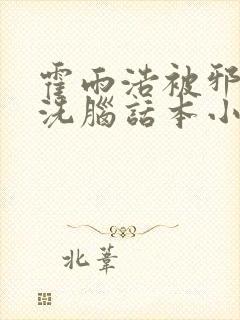 霍雨浩被邪
洗腦話本小
北葦